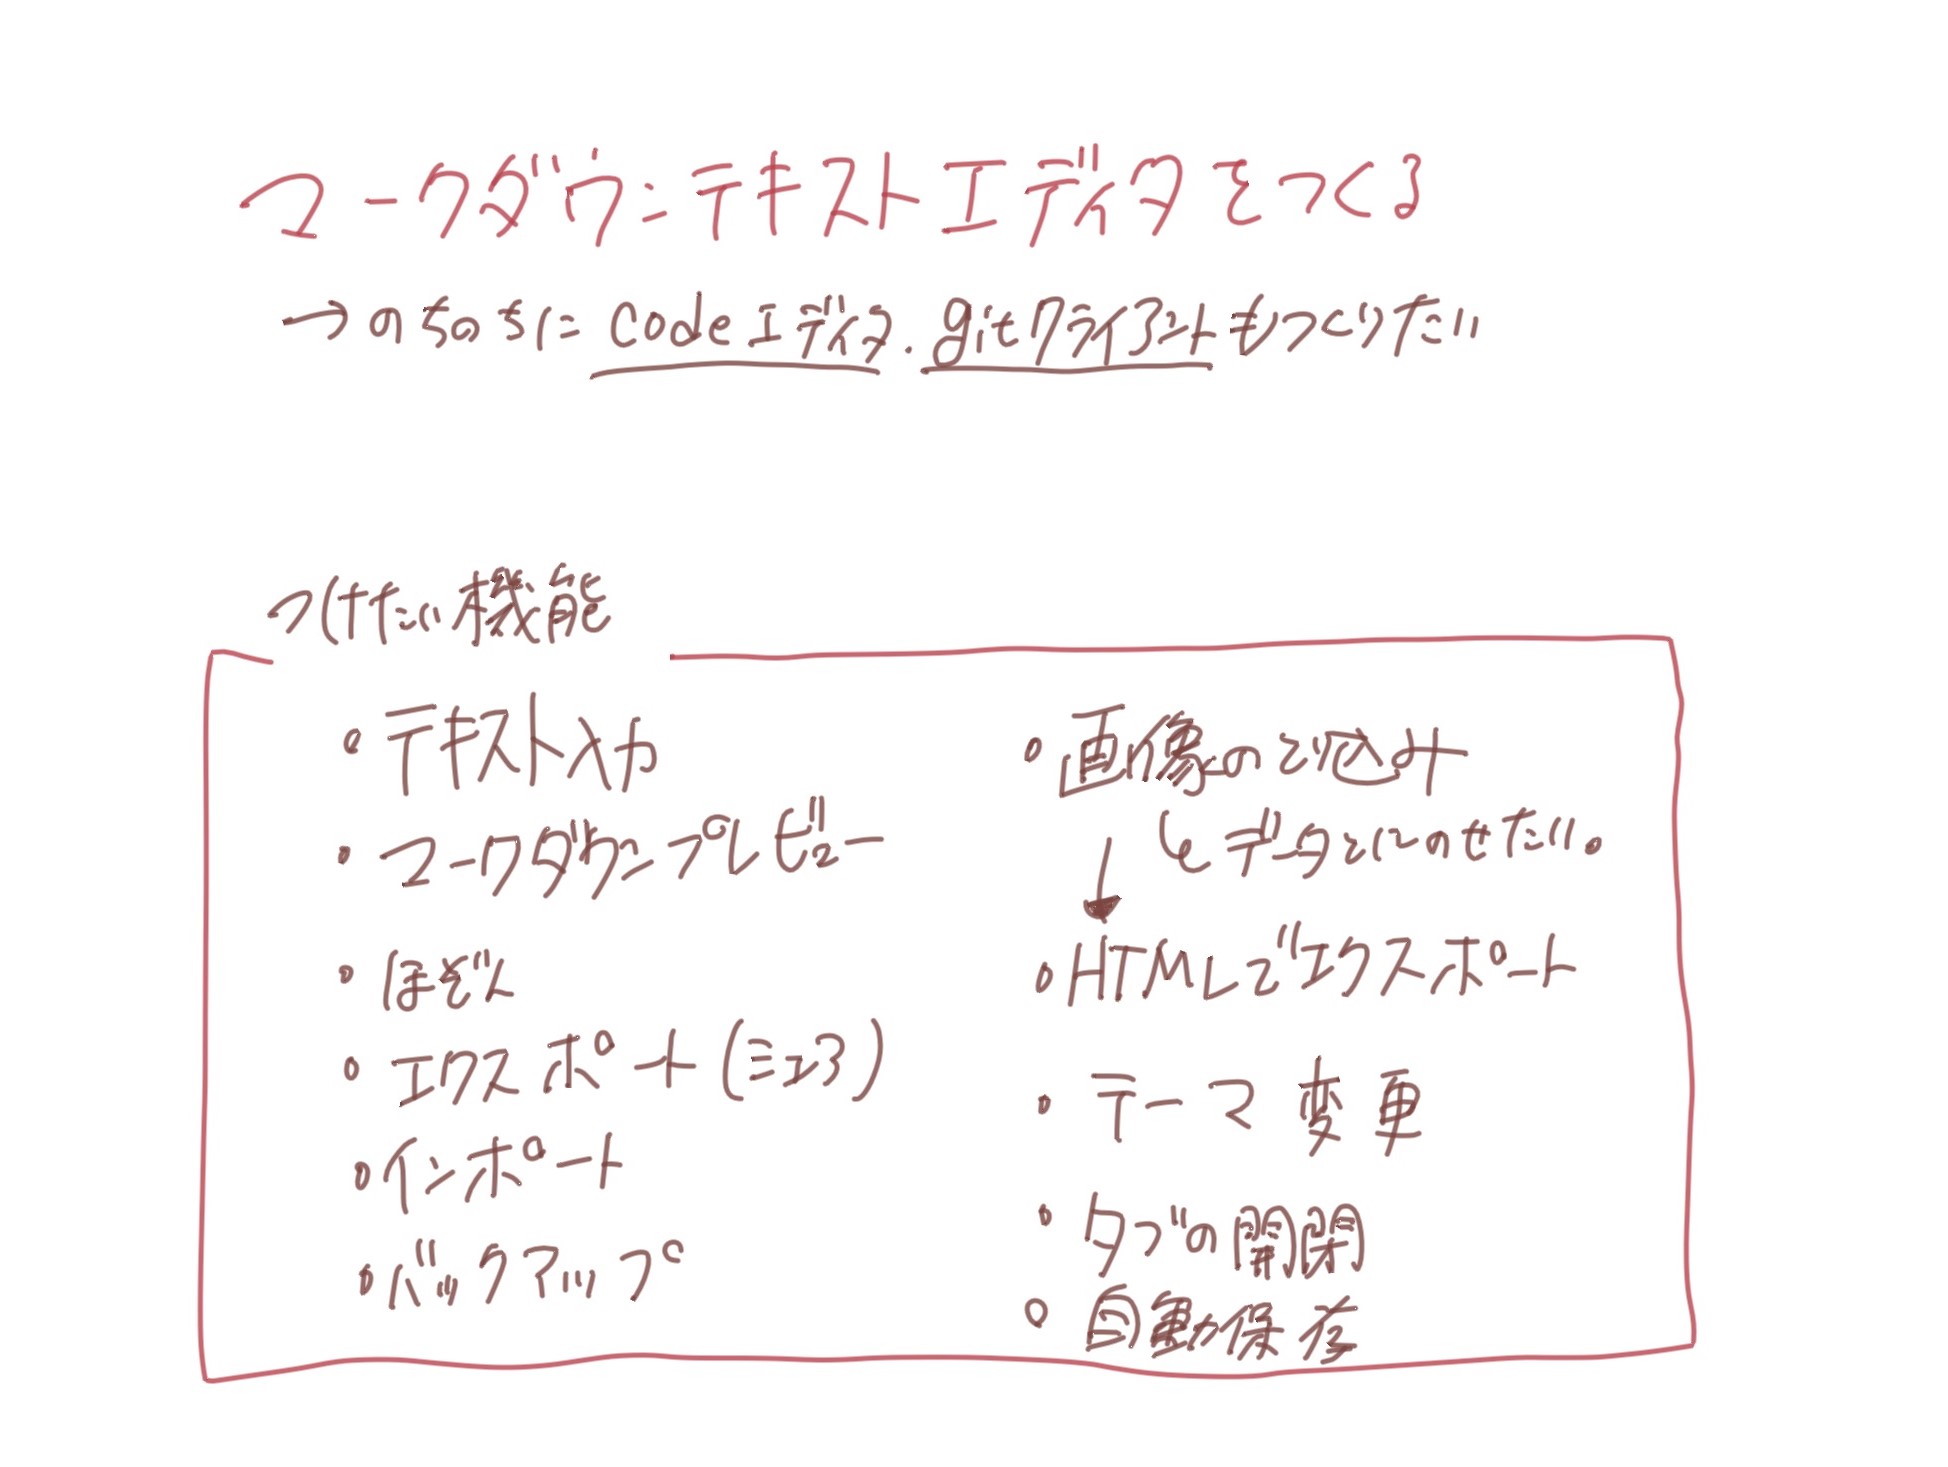 マークダウンテキストエディタをつくる
→のちのちにcodeエディタ.gitクライアントもつくりたい
つけたい機能
・テキスト入力
・マークダウンプレビュー
・ほぞん
・エクスポート
・インポート
・バックアップ
・画像のとり込み
データとにのせたい。
・HTMLでエクスポート
・テーマ変更
・タブの開閉
・自動保存